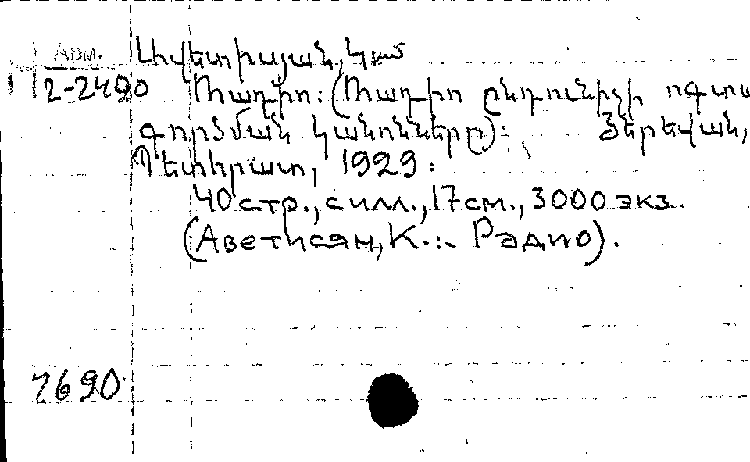 Арм.
Ավետիսյան, Կ.
2-2490 Ռադիո: (Ռադիո ընդունիչի օգտա
գործման կանոնները): Յերեվան,
Պետհրատ, 1929:
40 стр., с илл., 17 см., 3000 экз.
(Аветисян, К.:. Радио).
7690